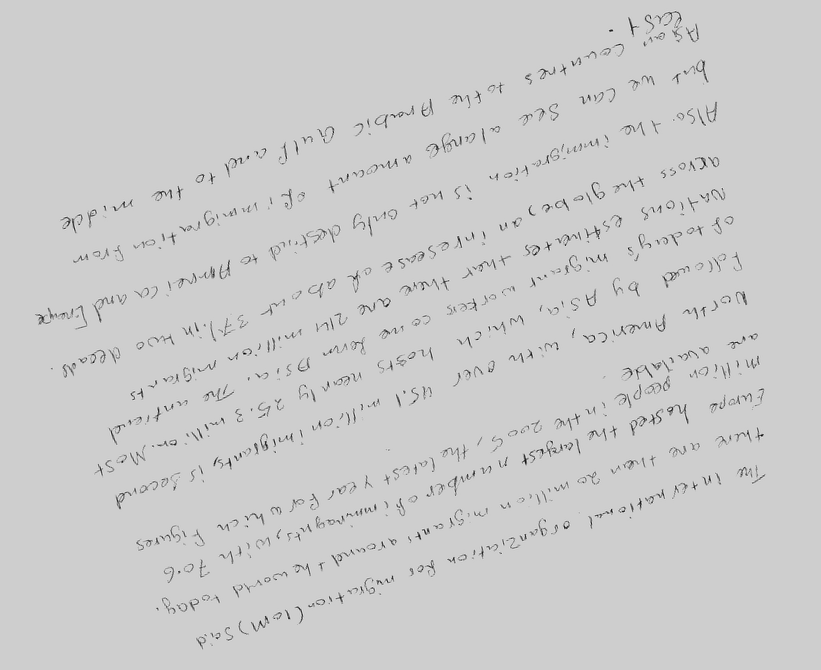 The international organziation for migration (IOM) said
there are then 20 million migrants around the world today.
Europe hosted the largest number of imminagnts, with 70.6
million people in the 2005, the latest year for which figures
are available
North America, with over 45.1 million imigrants, is second
followed by Asia, which hosts nearly 25.3 million. Most
of today's migrant workers come form Asia. The unfiend
Nations estineates ther there are 214 million migrants
across the globe, an incesease of about 37% in two deceads.
Also the immigration is not only destind to Ameica and Eroupe
but we can see alange amount of immigration from
Asian countres to the Arabic Gulf and to the midde
east.